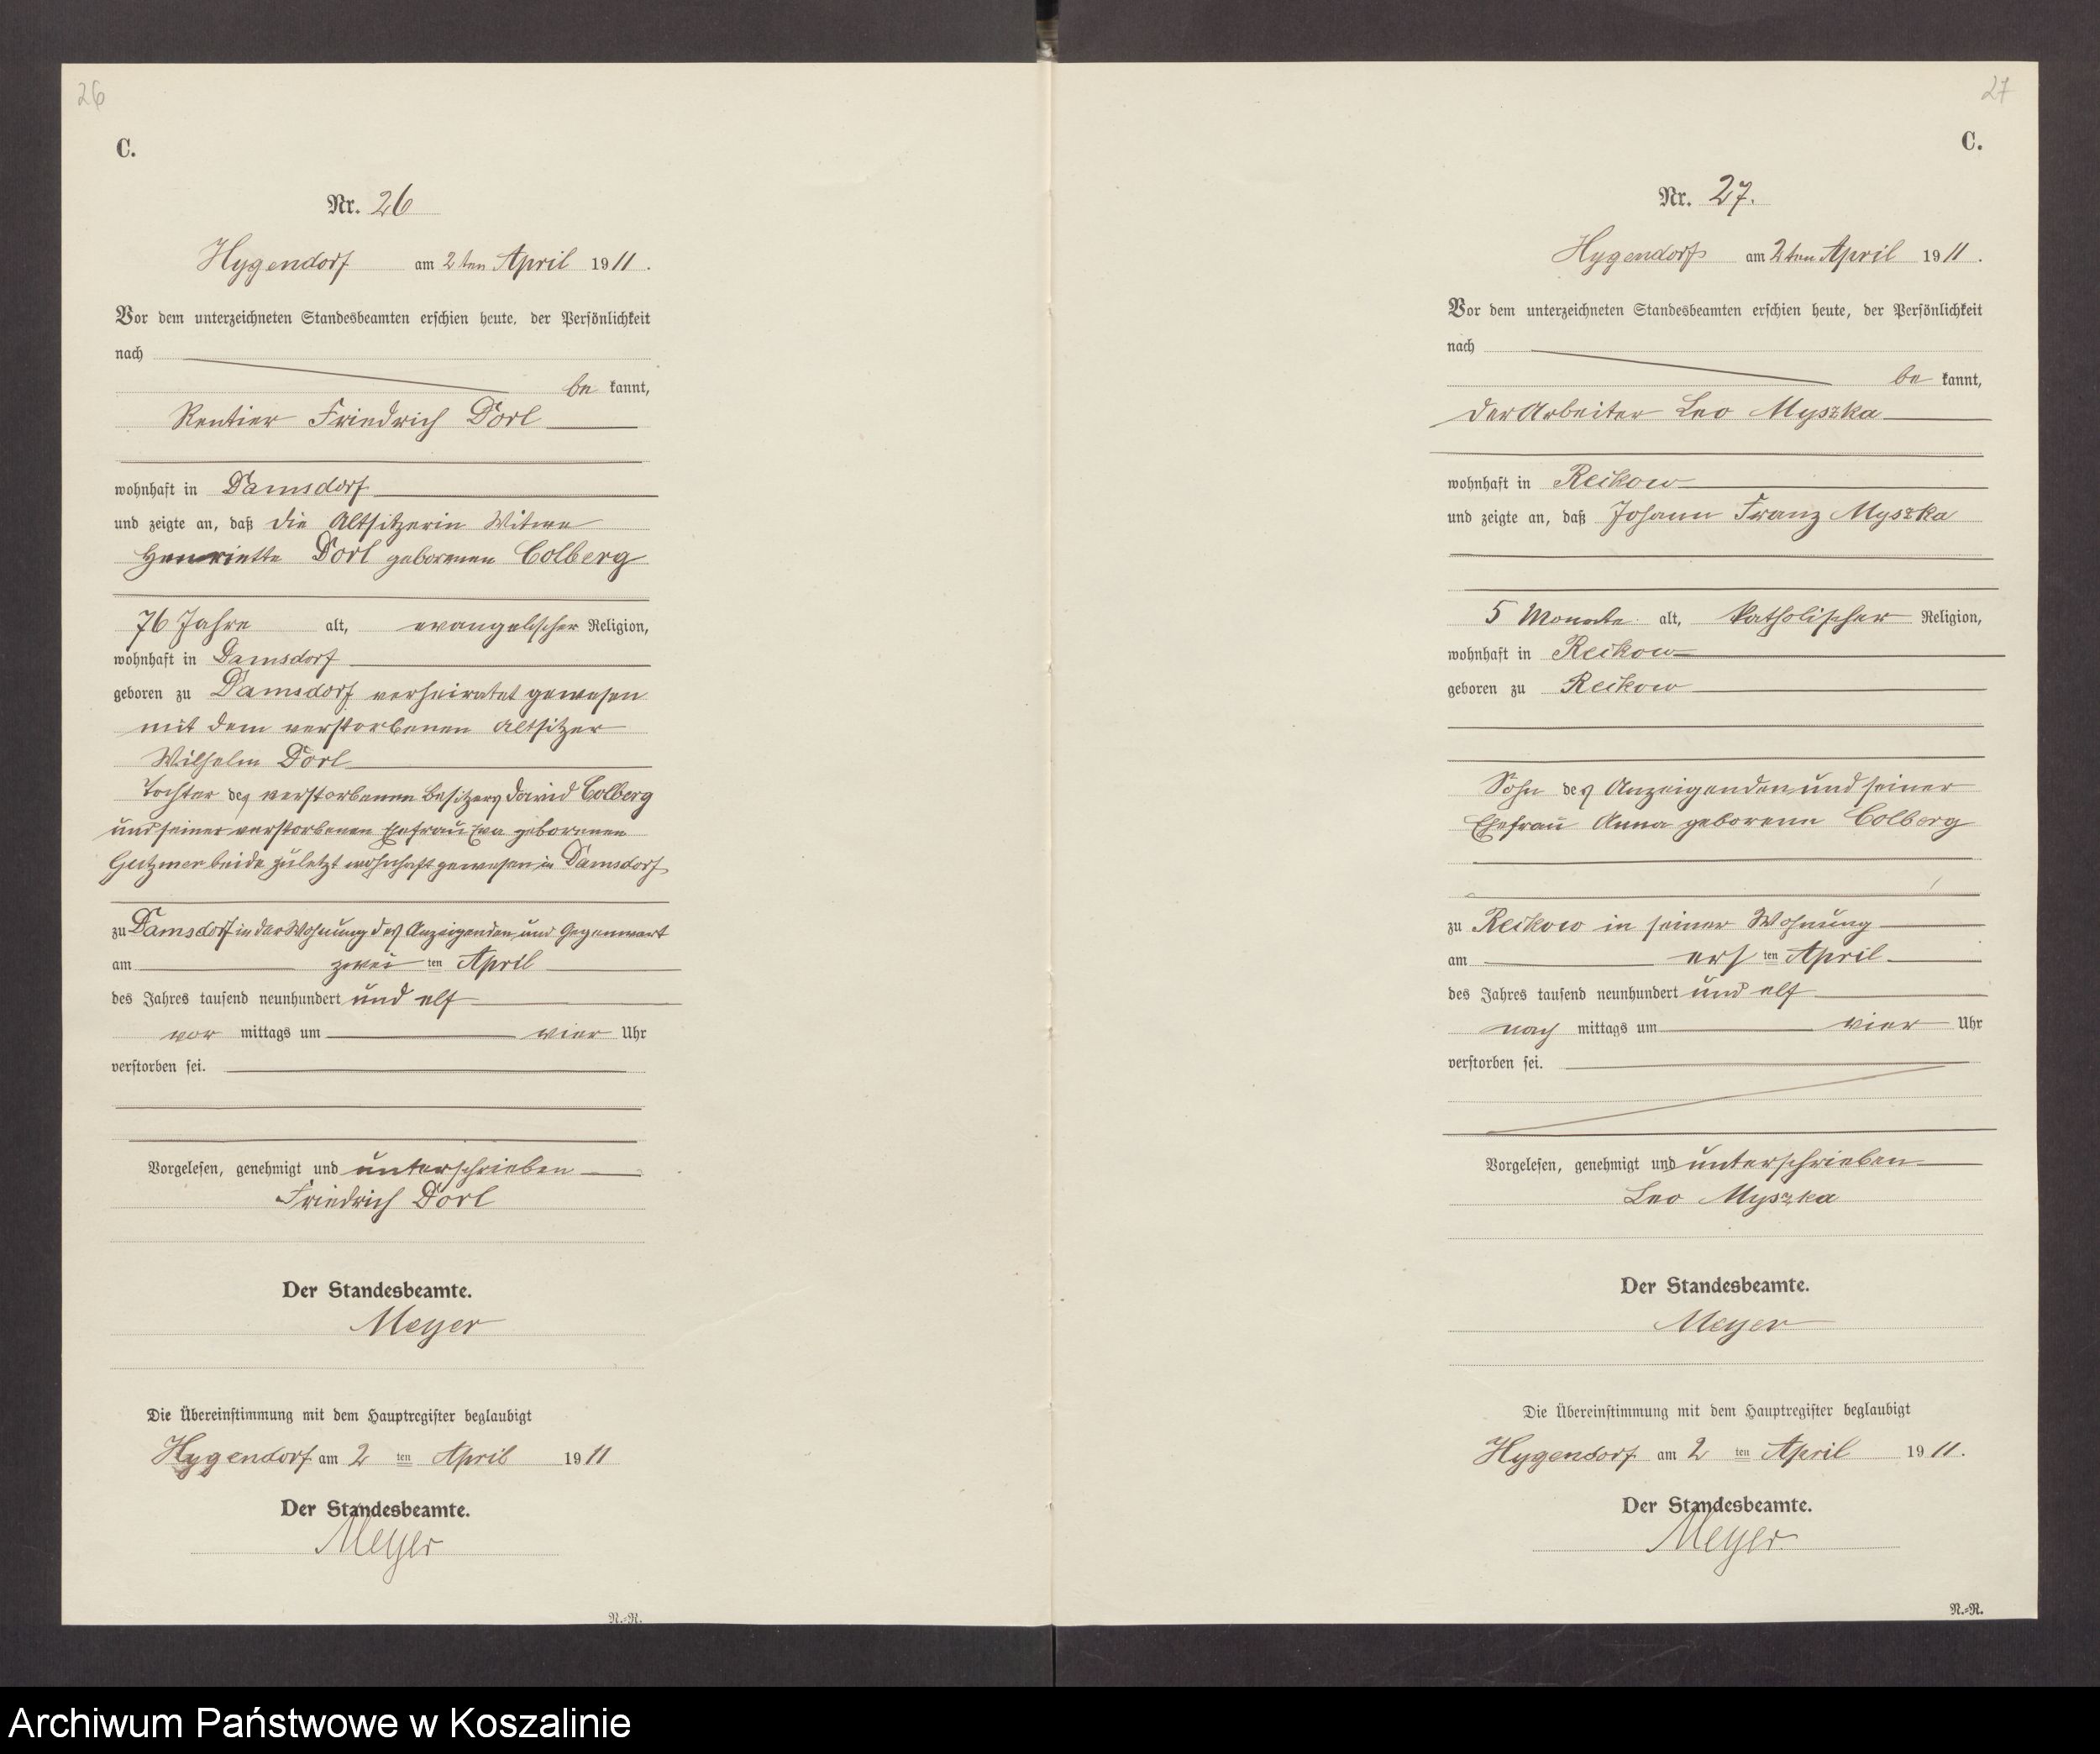 26
C.
Nr. 26
Hygendorf am 2ten April 1911.
Vor dem unterzeichneten Standesbeamten erschien heute, der Persönlichkeit
nach
be kannt,
Rentier Friedrich Dorl
wohnhaft in Damsdorf
und zeigte an, daß die Altsitzerin Witwe
Henriette Dorl geborenen Colberg
76 Jahre alt, evangelischer Religion,
wohnhaft in Damsdorf
geboren zu Damsdorf verheiratet gewesen
mit dem verstorbenen Altsitzer
Wilhelm Dorl
Tochter des verstorbenen Besitzers David Colberg
und seiner verstorbenen Ehefrau Eva geborenen
Gutzmer beide zuletzt wohnhaft gewesen in Damsdorf
zu Damsdorf in der Wohnung des Anzeigenden und Gegenwart
am zwei ten April
des Jahres tausend neunhundert und elf
vor mittags um vier Uhr
verstorben sei.
Vorgelesen, genehmigt und unterschrieben
Friedrich Dorl
Der Standesbeamte.
Meyer
Die Übereinstimmung mit dem Hauptregister beglaubigt
Hygendorf am 2 ten April 1911
Der Standesbeamte.
Meyer
N.-R.
27
C.
Nr. 27.
Hygendorf am 2ten April 1911.
Vor dem unterzeichneten Standesbeamten erschien heute, der Persönlichkeit
nach
be kannt,
der Arbeiter Leo Myszka
wohnhaft in Reikow
und zeigte an, daß Johann Franz Myszka
5 Monate alt, katholischer Religion,
wohnhaft in Reikow
geboren zu Reikow
Sohn des Anzeigenden und seiner
Ehefrau Anna geborene Colberg
zu Reikow in seiner Wohnung
am ers ten April
des Jahres tausend neunhundert und elf
nach mittags um vier Uhr
verstorben sei.
Vorgelesen, genehmigt und unterschrieben
Leo Myszka
Der Standesbeamte.
Meyer
Die Übereinstimmung mit dem Hauptregister beglaubigt
Hygendorf am 2 ten April 1911.
Der Standesbeamte.
Meyer
N.-R.
Archiwum Państwowe w Koszalinie